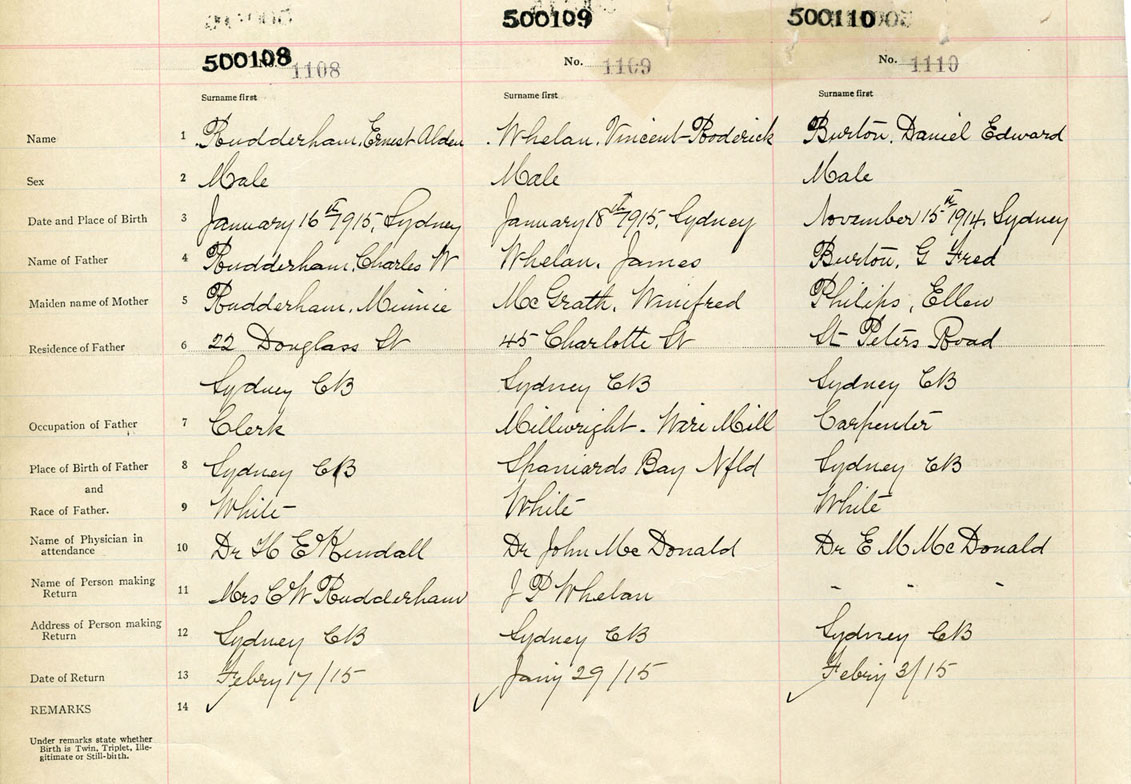 500108 500109 500110
No. 1108 No. 1109 No. 1110
Surname first Surname first Surname first
Name 1 Rudderham, Ernest Alden Whelan, Vincent Roderick Burton, Daniel Edward
Sex 2 Male Male Male
Date and Place of Birth 3 January 16th 1915, Sydney January 18th 1915, Sydney November 15th 1914, Sydney
Name of Father 4 Rudderham, Charles W Whelan, James Burton, G Fred
Maiden name of Mother 5 Rudderham, Minnie McGrath, Winifred Philips, Ellen
Residence of Father 6 22 Douglass St 45 Charlotte St St Peters Road
Sydney CB Sydney CB Sydney CB
Occupation of Father 7 Clerk Millwright - Wire Mill Carpenter
Place of Birth of Father 8 Sydney CB Spaniards Bay Nfld Sydney CB
and
Race of Father. 9 White White White
Name of Physician in
attendance 10 Dr H E Kendall Dr John McDonald Dr E M McDonald
Name of Person making
Return 11 Mrs C W Rudderham J P Whelan - - -
Address of Person making
Return 12 Sydney CB Sydney CB Sydney CB
Date of Return 13 Febry 17/15 Jany 29/15 Febry 3/15
REMARKS 14
Under remarks state whether
Birth is Twin, Triplet, Ille-
gitimate or Still-birth.